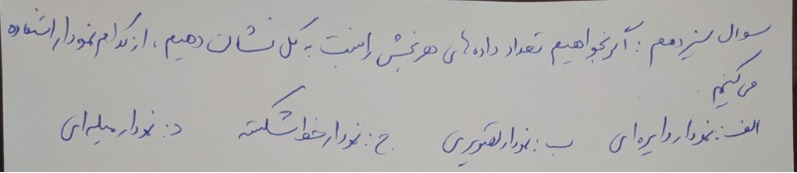 سوال سیزدهم: اگر بخواهیم تعداد داده‌های هر بخش را نسبت به کل نشان دهیم، از کدام نمودار استفاده
می‌کنیم
الف: نمودار دایره‌ای ب: نمودار تصویری ج: نمودار خط شکسته د: نمودار میله‌ای